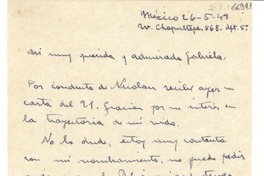 México 26-5-49
Av. Chapultepec, 868. Apt. 5º
Mi muy querida y admirada Gabriela.
Por conducto de Nicolau recibí ayer su
carta del 21. Gracias por su interés en
la trayectoria de mi vida.
No lo dude, estoy muy contenta
con mi nombramiento, no puedo pedir